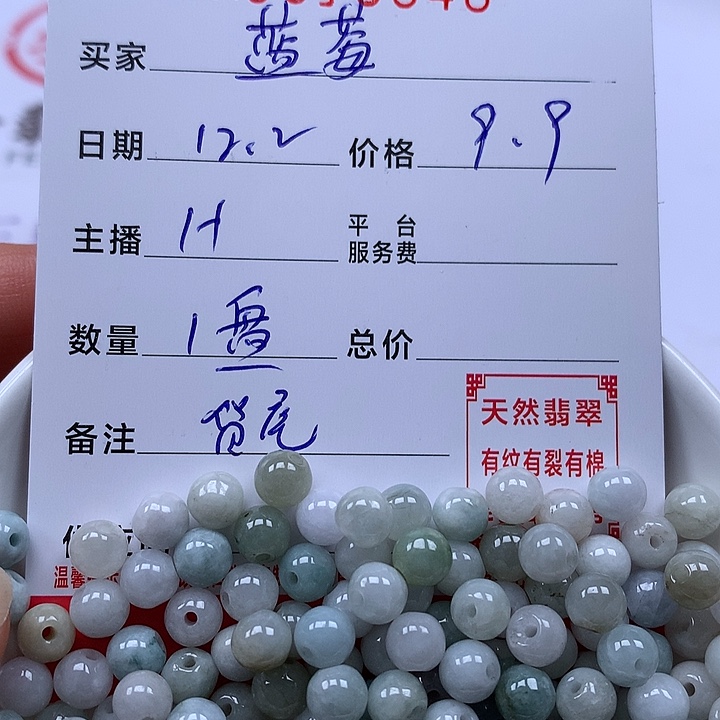 买家 蓝莓
日期 12.2 价格 9.9
主播 H 平台服务费
数量 1盘 总价
备注 货尾
天然翡翠
有纹有裂有棉
温馨